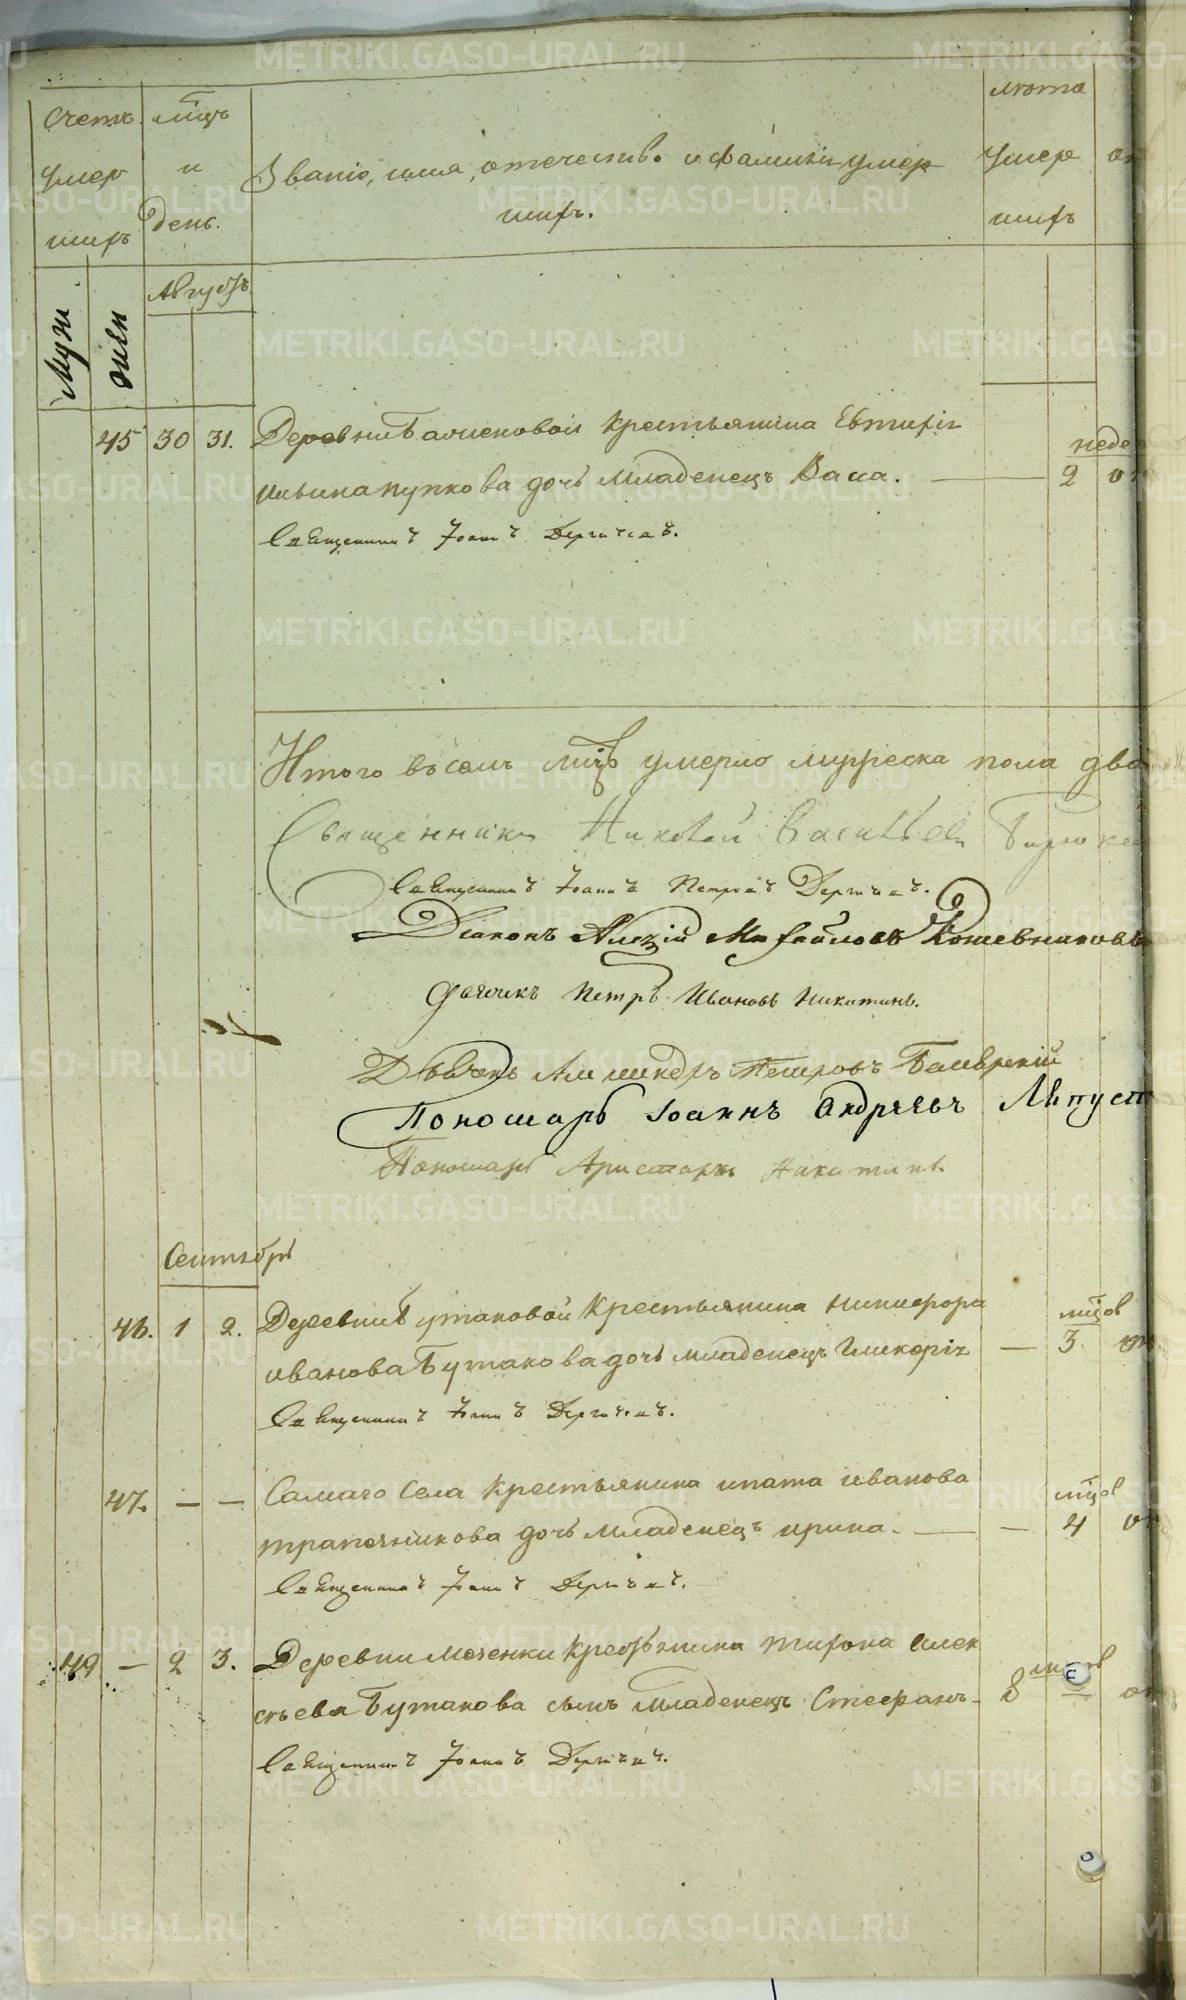 Счетъ
умер
шихъ
мцъ
и
день.
Званіе, имя, отечество и фамиліи умер
шихъ.
лѣта
умер
шихъ
Муж
жен
Августъ
45 30 31. Деревни крестьянина Евтифія
недел
Ильина Пупкова дочь младенецъ Васа. — 2 от
Священникъ Іоаннъ Дергачевъ.
Итого въ семъ мцѣ умерло мужеска пола два
Священникъ Николай Васильевъ Бирюков
Священникъ Іоаннъ Петровъ Дергачевъ.
Діаконъ Алексій Михайловъ Кожевниковъ
Дьячекъ Петръ Ивановъ Никитинъ.
Дьячекъ Александръ Петровъ
Пономарь Іоаннъ Андреевъ
Пономарь Аристархъ Никитинъ
Сентябрь
46. 1 2. Деревни Бутаковой крестьянина Никифора
мцов
Иванова Бутакова дочь младенецъ Гликерія — 3
Священникъ Іоаннъ Дергачевъ.
47. — — Самаго села крестьянина Ипата Иванова
мцов
Трапезникова дочь младенецъ Ирина. — 4 от
Священникъ Іоаннъ Дергачевъ.
49 — 2 3. Деревни Моченки крестьянина Тифона Алек
сѣева Бутакова сынъ младенецъ Стефанъ — 8 —
Священникъ Іоаннъ Дергачевъ.
METRIKI.GASO-URAL.RU